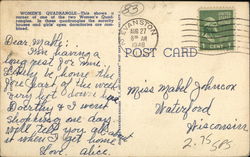 WOMEN'S QUADRANGLE—This shows a
corner of one of the two Women's Quad-
rangles. In these quadrangles the sorority
houses and open dormitories are com-
bined.
53
EVANSTON
AUG 27
8 AM
1940
1¢
POST CARD
Dear Mabel:
I'm having a
long rest for me.
I'll be home the
first part of the week
every body home
Dorothy & I went
shopping one day.
Will tell you all about
it when I get home
Love, Alice.
Miss Mabel Johnson
Waterford
Wisconsin
2.75 SPS